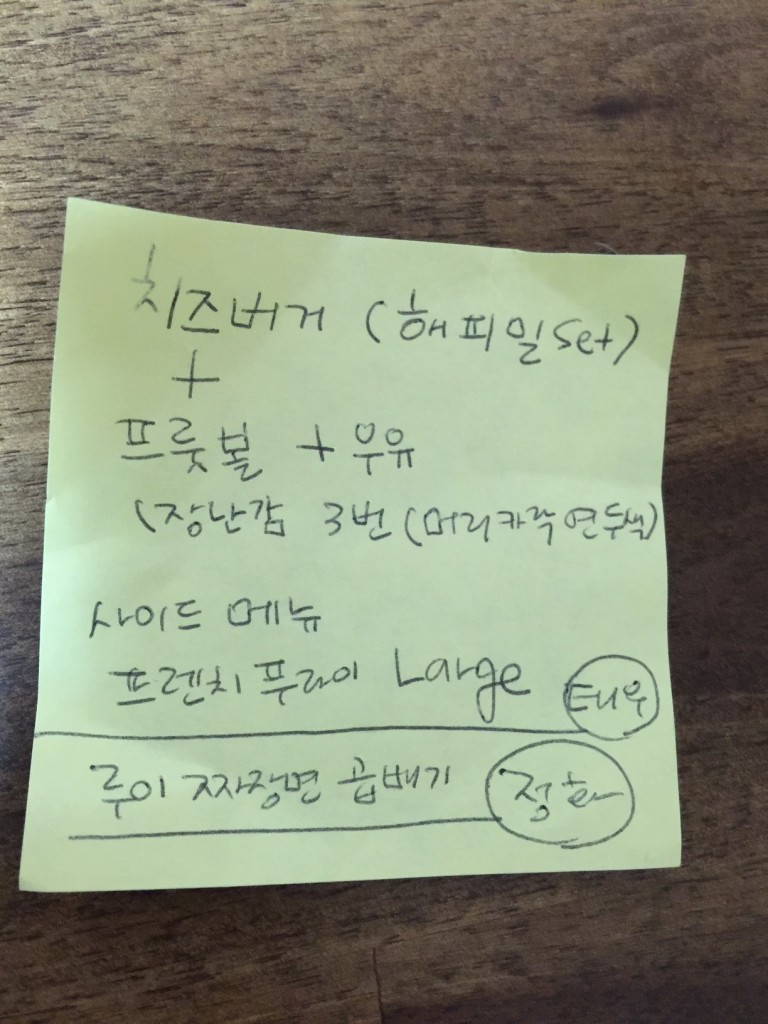 치즈버거 (해피밀 set)
+
프룻볼 + 우유
(장난감 3번 (머리카락 연두색)
사이드 메뉴
프렌치 푸라이 Large 태우
루이 짜장면 곱빼기 정화